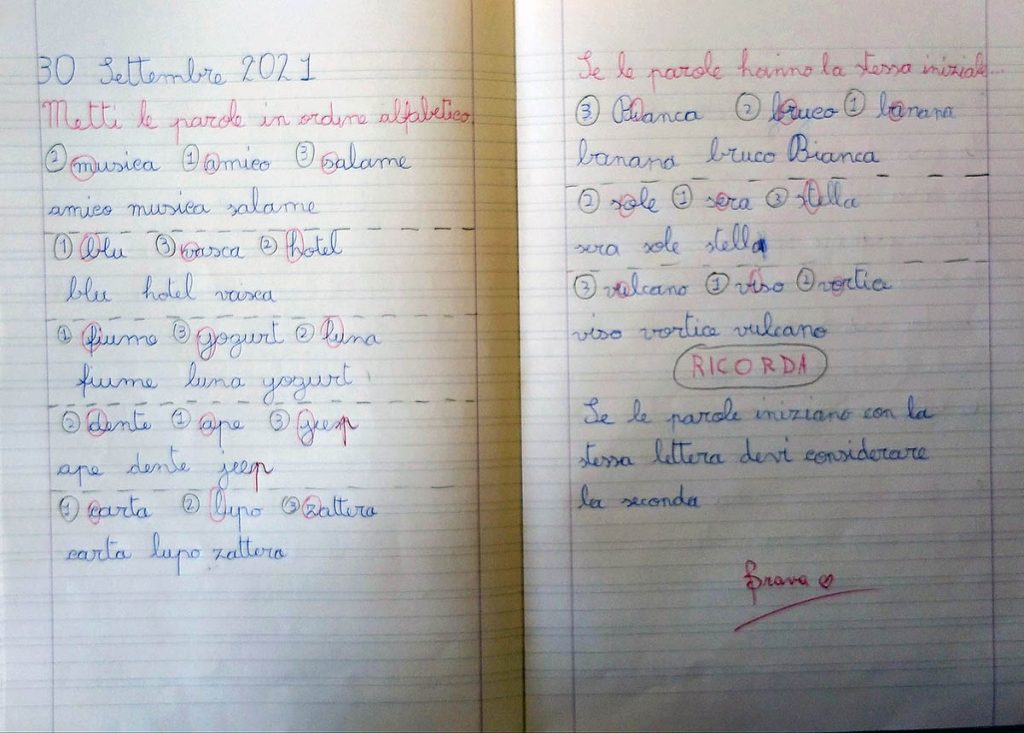 30 Settembre 2021
Metti le parole in ordine alfabetico
② musica ① amico ③ salame
amico musica salame
① blu ③ vasca ② hotel
blu hotel vasca
① fiume ③ yogurt ② luna
fiume luna yogurt
② dente ① ape ③ jeep
ape dente jeep
① carta ② lupo ③ zattera
carta lupo zattera
Se le parole hanno la stessa iniziale...
③ Bianca ② bruco ① banana
banana bruco Bianca
② sole ① sera ③ stella
sera sole stella
③ vulcano ① viso ② vortice
viso vortice vulcano
RICORDA
Se le parole iniziano con la
stessa lettera devi considerare
la seconda
Brava